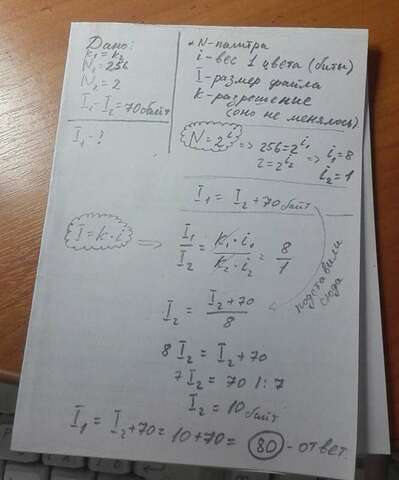 Дано:
k₁ = k₂
N₁ = 256
N₂ = 2
I₁ - I₂ = 70 байт
I₁ - ?
* N - палитра
i - вес 1 цвета (биты)
I - размер файла
k - разрешение
(оно не менялось)
N = 2ⁱ => 256 = 2^i₁ => i₁ = 8
2 = 2^i₂ i₂ = 1
I₁ = I₂ + 70 байт
I = k · i => I₁/I₂ = k₁ · i₁ / k₂ · i₂ = 8/1
подставили
сюда
I₂ = I₂ + 70 / 8
8 I₂ = I₂ + 70
7 I₂ = 70 | : 7
I₂ = 10 байт
I₁ = I₂ + 70 = 10 + 70 = 80 - ответ